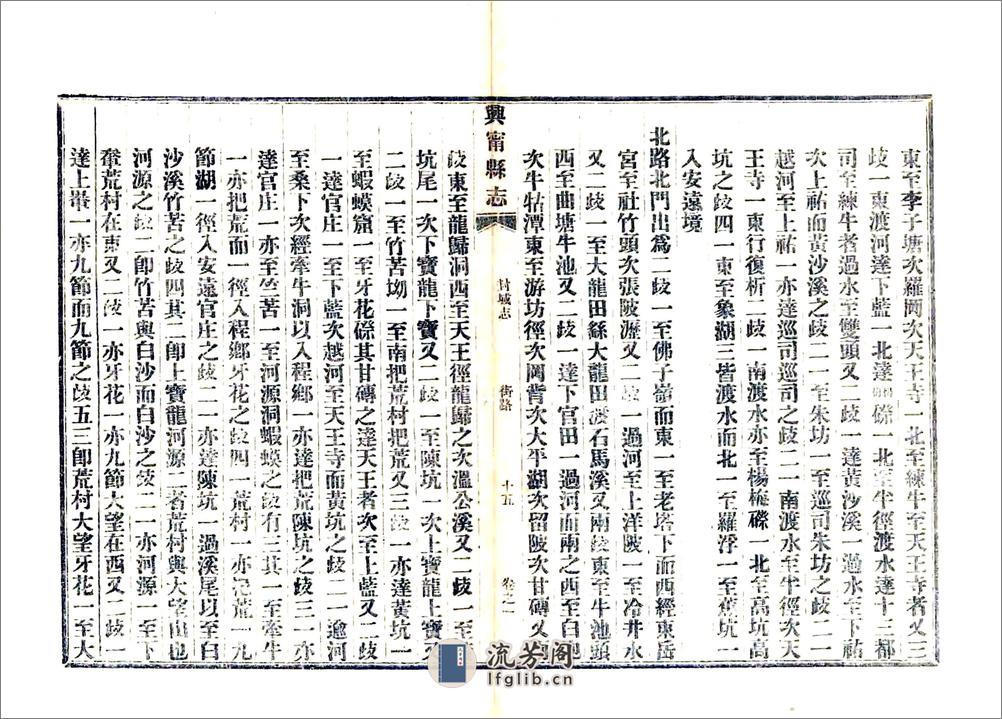 東至李子塘次羅岡次天王寺一北至練牛至天王寺者又三
歧一東渡河達下藍一北達磜一北至半徑渡水達十三都
司至練牛者過水至雙頭又二歧一達黃沙溪一過水至下祐
次上祐而黃沙溪之歧二一至朱坊一至巡司朱坊之歧二一
越河至上祐一亦達巡司巡司之歧二一南渡水至半徑次天
王寺一東行復析二歧一南渡水亦至楊梅磜一北至高坑高
坑之歧四一東至象湖三皆渡水而北一至羅浮一至蕉坑一
入安遠境
北路北門出為二歧一至佛子嶺而東一至老塔下而西經東岳
宮至社竹頭次張陂瀝又二歧一過河至上洋陂一至冷井水
又二歧一至大龍田繇大龍田歷石馬溪又兩歧東至牛池頭
西至曲塘牛池又二歧一達下官田一過河而南之西至白
次牛牯潭東至游坊徑次岡背次大平湖次留陂次甘磚又
興甯縣志
封域志
街路
十五
卷之一
歧東至龍歸洞西至天王徑龍歸之次溫公溪又二歧一至
坑尾一次下寶龍下寶又二歧一至陳坑一次上寶龍上寶又
二歧一至竹苦坳一至南把荒村把荒又三歧一亦達黃坑一
至蝦蟆窟一至牙花磜其甘磚之達天王者次至上藍又二歧
一達官庄一至下藍次越河至天王寺而黃坑之歧二一逾河
至桑下次經牽牛洞以入程鄉一亦達把荒陳坑之歧三一亦
達官庄一亦至竺苦一至河源洞蝦蟆之歧有二其一至牽牛
一亦把荒而一徑入程鄉牙花之歧四一荒村一亦把荒一九
節湖一徑入安遠官庄之歧二一達陳坑一過溪尾以至白
沙溪竹苦之歧四其二卽上寶龍河源二者荒村與大望山也
河源之歧二卽竹苦與白沙而白沙之歧二一亦河源一至下
輋荒村在東又二歧一亦牙花一亦九節大望在西又二歧一
達上輋一亦九節而九節之歧五三卽荒村大望牙花一至大
流芳阁
lfglib.cn